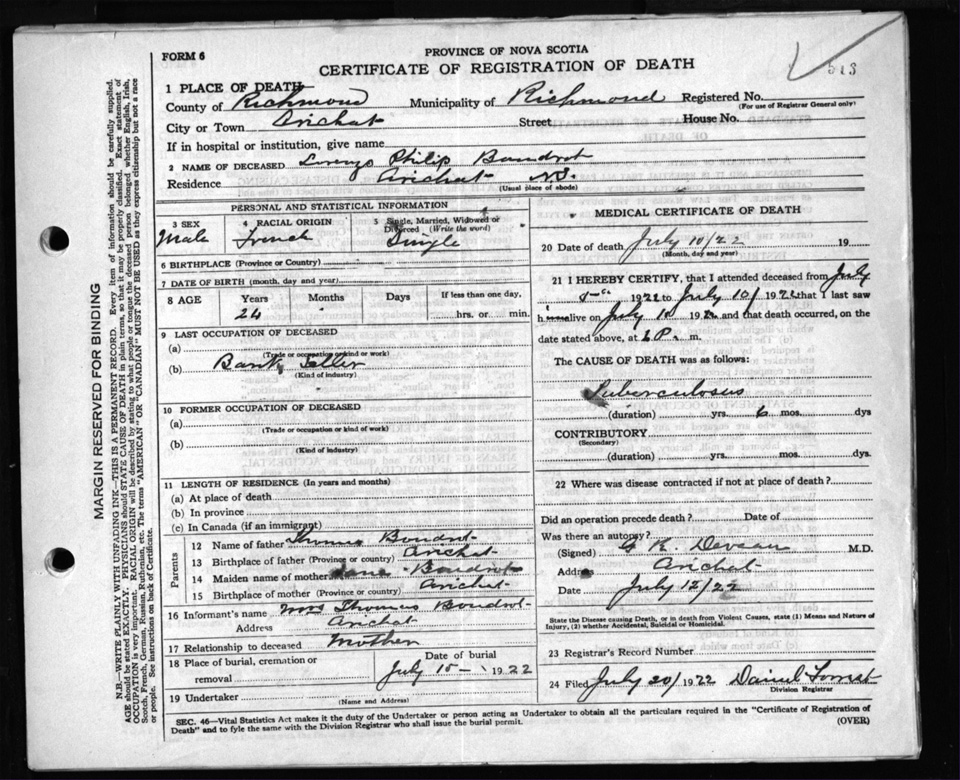 513
FORM 6
PROVINCE OF NOVA SCOTIA
CERTIFICATE OF REGISTRATION OF DEATH
1 PLACE OF DEATH
County of Richmond Municipality of Richmond Registered No.
(For use of Registrar General only)
City or Town Arichat Street House No.
If in hospital or institution, give name
2 NAME OF DECEASED Lorenzo Philip Boudrot
Residence Arichat N.S.
(Usual place of abode)
PERSONAL AND STATISTICAL INFORMATION
3 SEX 4 RACIAL ORIGIN 5 Single, Married, Widowed or Divorced (Write the word)
Male French Single
6 BIRTHPLACE (Province or Country)
7 DATE OF BIRTH (month, day and year)
8 AGE Years Months Days If less than one day,
24 hrs. or min.
9 LAST OCCUPATION OF DECEASED
(a)
(Trade or occupation or kind or work)
(b) Bank Teller
(Kind of industry)
10 FORMER OCCUPATION OF DECEASED
(a)
(Trade or occupation or kind of work)
(b)
(Kind of industry)
11 LENGTH OF RESIDENCE (In years and months)
(a) At place of death
(b) In province
(c) In Canada (if an immigrant)
Parents
12 Name of father Thomas Boudrot
13 Birthplace of father (Province or country) Arichat
14 Maiden name of mother Boudrot
15 Birthplace of mother (Province or country) Arichat
16 Informant's name Mrs Thomas Boudrot
Address Arichat
17 Relationship to deceased Mother
18 Place of burial, cremation or removal Date of burial
July 15 - 1922
19 Undertaker
(Name and Address)
MEDICAL CERTIFICATE OF DEATH
20 Date of death July 10/22 19
(Month, day and year)
21 I HEREBY CERTIFY, that I attended deceased from July
1922 to July 10/ 1922 that I last saw
h alive on July 10 192 and that death occurred, on
date stated above, at P. m.
The CAUSE OF DEATH was as follows:
Tuberculosis
(duration) yrs. 6 mos. dys
CONTRIBUTORY
(Secondary)
(duration) yrs. mos. dys.
22 Where was disease contracted if not at place of death?
Did an operation precede death? Date of
Was there an autopsy?
(Signed) K. Deveau M.D.
Address Arichat
Date July 12/22
State the Disease causing Death, or in death from Violent Causes, state (1) Means and Nature of
Injury, (2) whether Accidental, Suicidal or Homicidal.
23 Registrar's Record Number
24 Filed July 20/ 1922 Daniel Forrest
Division Registrar
SEC. 46—Vital Statistics Act makes it the duty of the Undertaker or person acting as Undertaker to obtain all the particulars required in the "Certificate of Registration of
Death" and to fyle the same with the Division Registrar who shall issue the burial permit. (OVER)
MARGIN RESERVED FOR BINDING
N.B.—WRITE PLAINLY WITH UNFADING INK—THIS IS A PERMANENT RECORD. Every item of information should be carefully supplied.
AGE should be stated EXACTLY. PHYSICIANS should STATE CAUSE OF DEATH in plain terms, so that it may be properly classified. Exact statement of
OCCUPATION is very important. RACIAL ORIGIN will be described by stating to what people or tongue the deceased person belonged whether English, Irish,
Scotch, French, German, Russian, Ruthenian, etc. The terms "AMERICAN" OR "CANADIAN" MUST NOT BE USED as they express citizenship but not a race
or people. See instructions on back of Certificate.